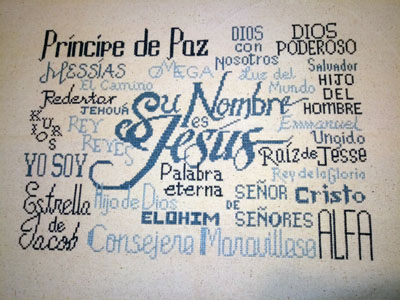 Príncipe de Paz
DIOS
con
Nosotros
DIOS
PODEROSO
MESSÍAS
OMEGA
Luz del
Mundo
Salvador
El Camino
HIJO
DEL
HOMBRE
Redentor
JEHOVÁ
KURIOS
REY
DE
REYES
Su Nombre
es
Jesús
Emmanuel
Ungido
Raíz de Jesse
YO SOY
Palabra
eterna
Rey de la Gloria
Estrella
de
Jacob
Hijo de Dios
SEÑOR
DE
SEÑORES
Cristo
ELOHIM
Consejero Maravilloso
ALFA